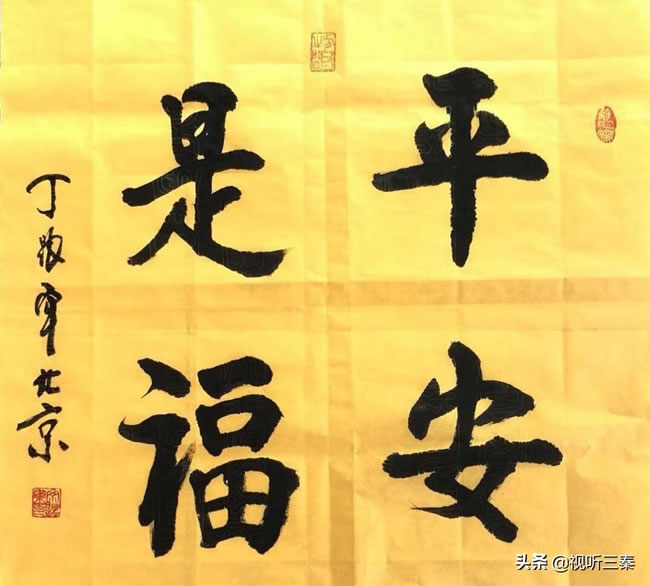 平安
是福
丁 北京
头条 @视听三秦